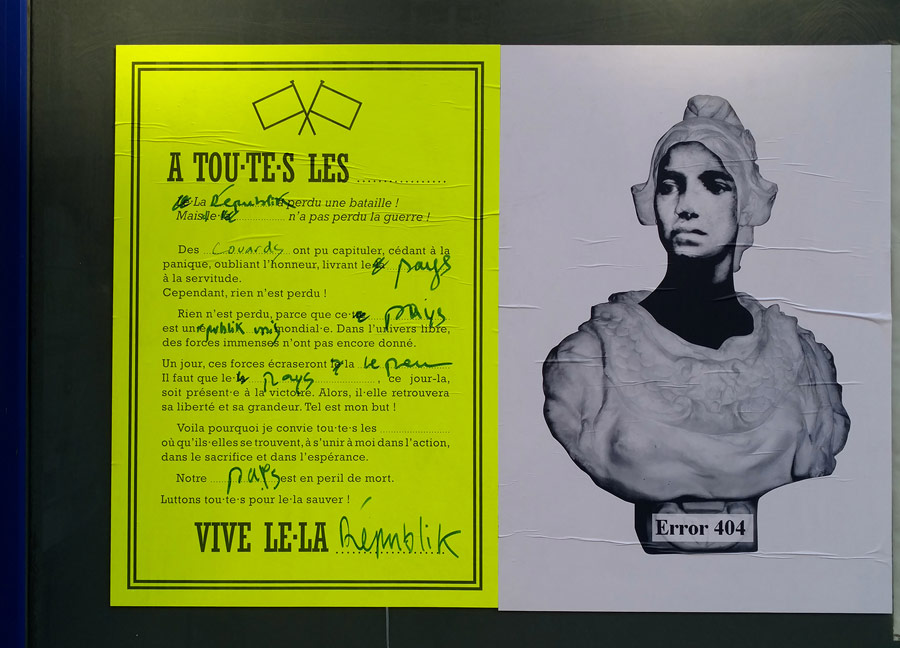 A TOU·TE·S LES ..................
La Républik a perdu une bataille !
Mais le· .................. n'a pas perdu la guerre !
Des Couards ont pu capituler, cédant à la
panique, oubliant l'honneur, livrant le pays
à la servitude.
Cependant, rien n'est perdu !
Rien n'est perdu, parce que ce· pays
est un républik mondial·e. Dans l'univers libre,
des forces immenses n'ont pas encore donné.
Un jour, ces forces écraseront la le pen
Il faut que le· pays .................. , ce jour-la,
soit présent·e à la victoire. Alors, il·elle retrouvera
sa liberté et sa grandeur. Tel est mon but !
Voila pourquoi je convie tou·te·s les ..................
où qu'ils·elles se trouvent, à s'unir à moi dans l'action,
dans le sacrifice et dans l'espérance.
Notre pays est en peril de mort.
Luttons tou·te·s pour le·la sauver !
VIVE LE·LA Républik
Error 404